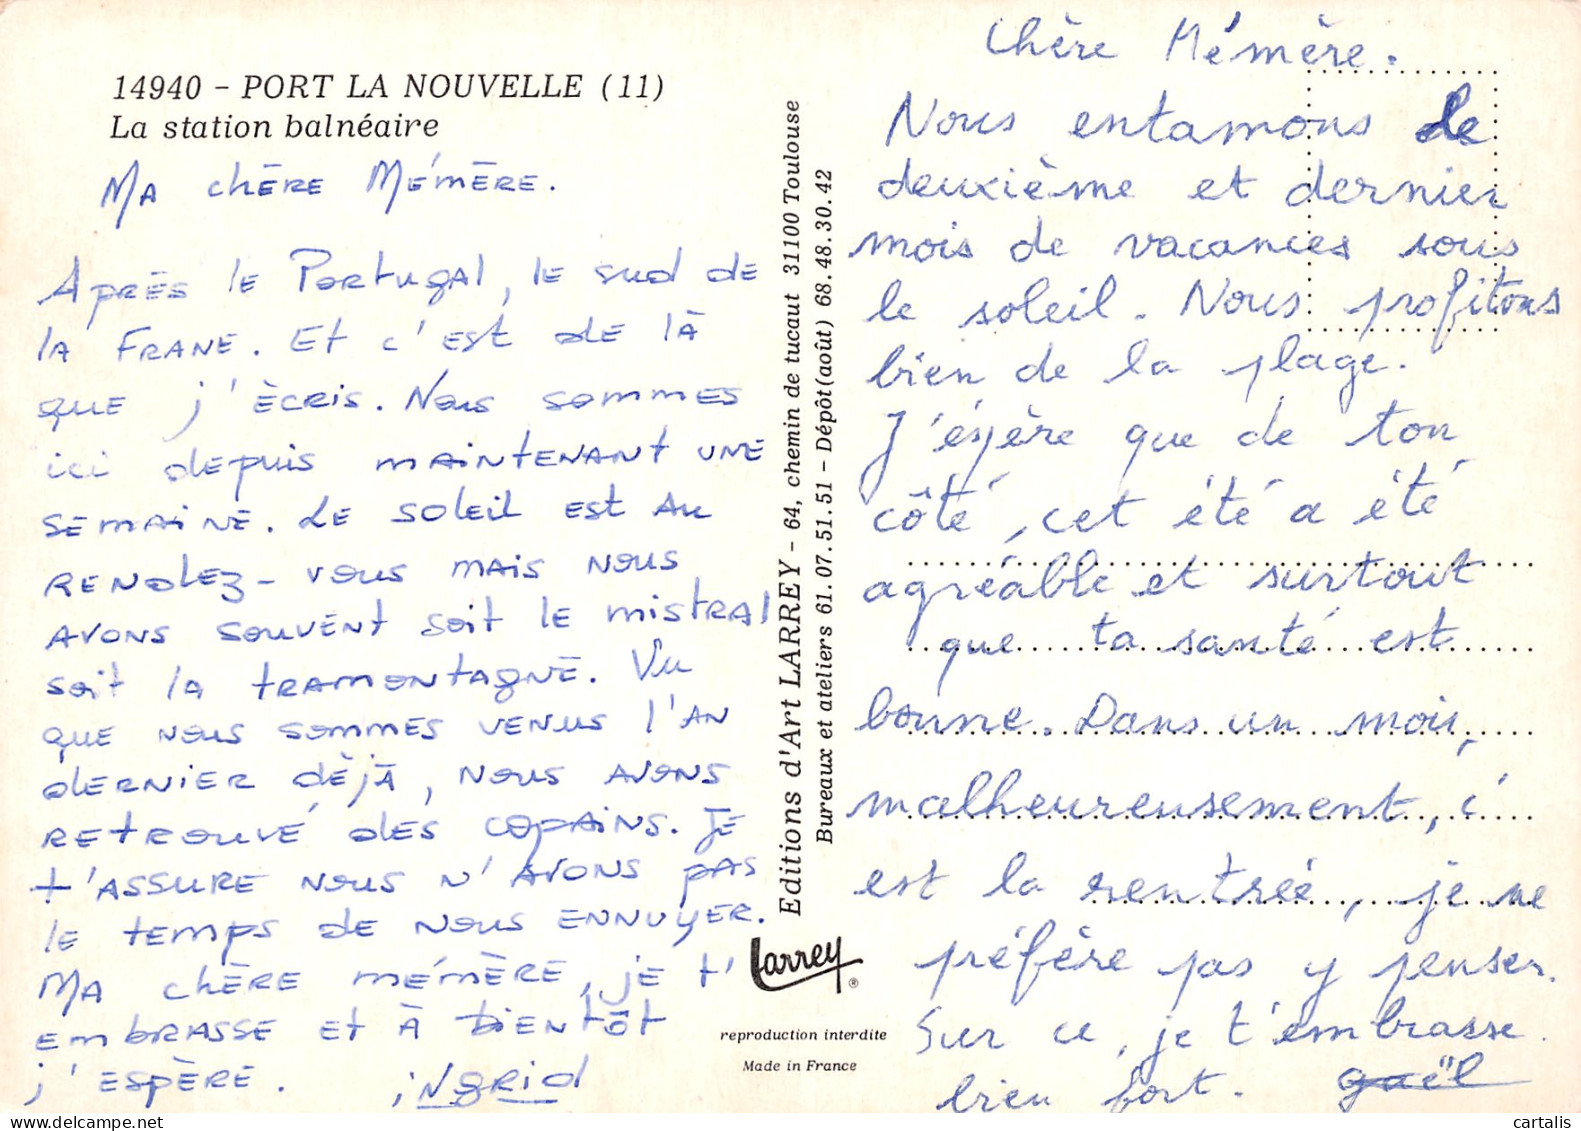 14940 - PORT LA NOUVELLE (11)
La station balnéaire
Ma chère Mémère.
Après le Portugal, le sud de
la Frane. Et c'est de là
que j'écris. Nous sommes
ici depuis maintenant une
semaine. Le soleil est au
rendez-vous mais nous
avons souvent soit le mistral
soit la tramontagne. Vu
que nous sommes venus l'an
dernier déjà, nous avons
retrouvé des copains. Je
t'assure nous n'avons pas
le temps de nous ennuyer.
Ma chère mémère, je t'
embrasse et à bientôt
j'espère. ingrid
Editions d'Art LARREY - 64, chemin de tucaut 31100 Toulouse
Bureaux et ateliers 61.07.51.51 - Dépôt (août) 68.48.30.42
Larrey ®
reproduction interdite
Made in France
Chère Mémère.
Nous entamons le
deuxième et dernier
mois de vacances sous
le soleil. Nous profitons
bien de la plage.
J'éspère que de ton
côté, cet été a été
agréable et surtout
que ta santé est
bonne. Dans un mois,
malheureusement, c'
est la rentrée, je ne
préfère pas y penser.
Sur ce, je t'embrasse
bien fort. gaël
cartalis